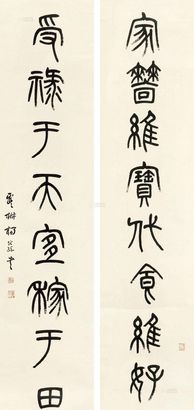 家嗇維寶代食維好
受祿于天宜稼于田